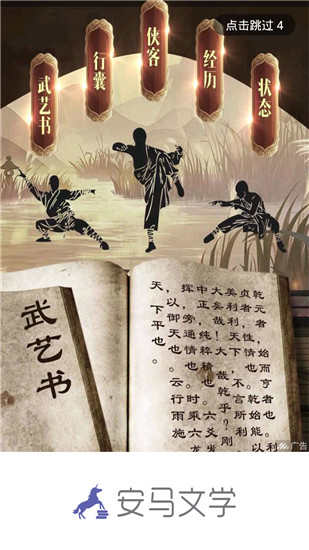 点击跳过 4
武艺书
行囊
侠客
经历
状态
武艺书
乾元者，始而亨者也。利
贞者，性情也。乾始能以
美利利天下，不言所利。
大矣哉！大哉乾乎？刚
中正，纯粹精也。六爻发
挥，旁通情也。时乘六龙
，以御天也。云行雨施
天下平也。
广告
安马文学